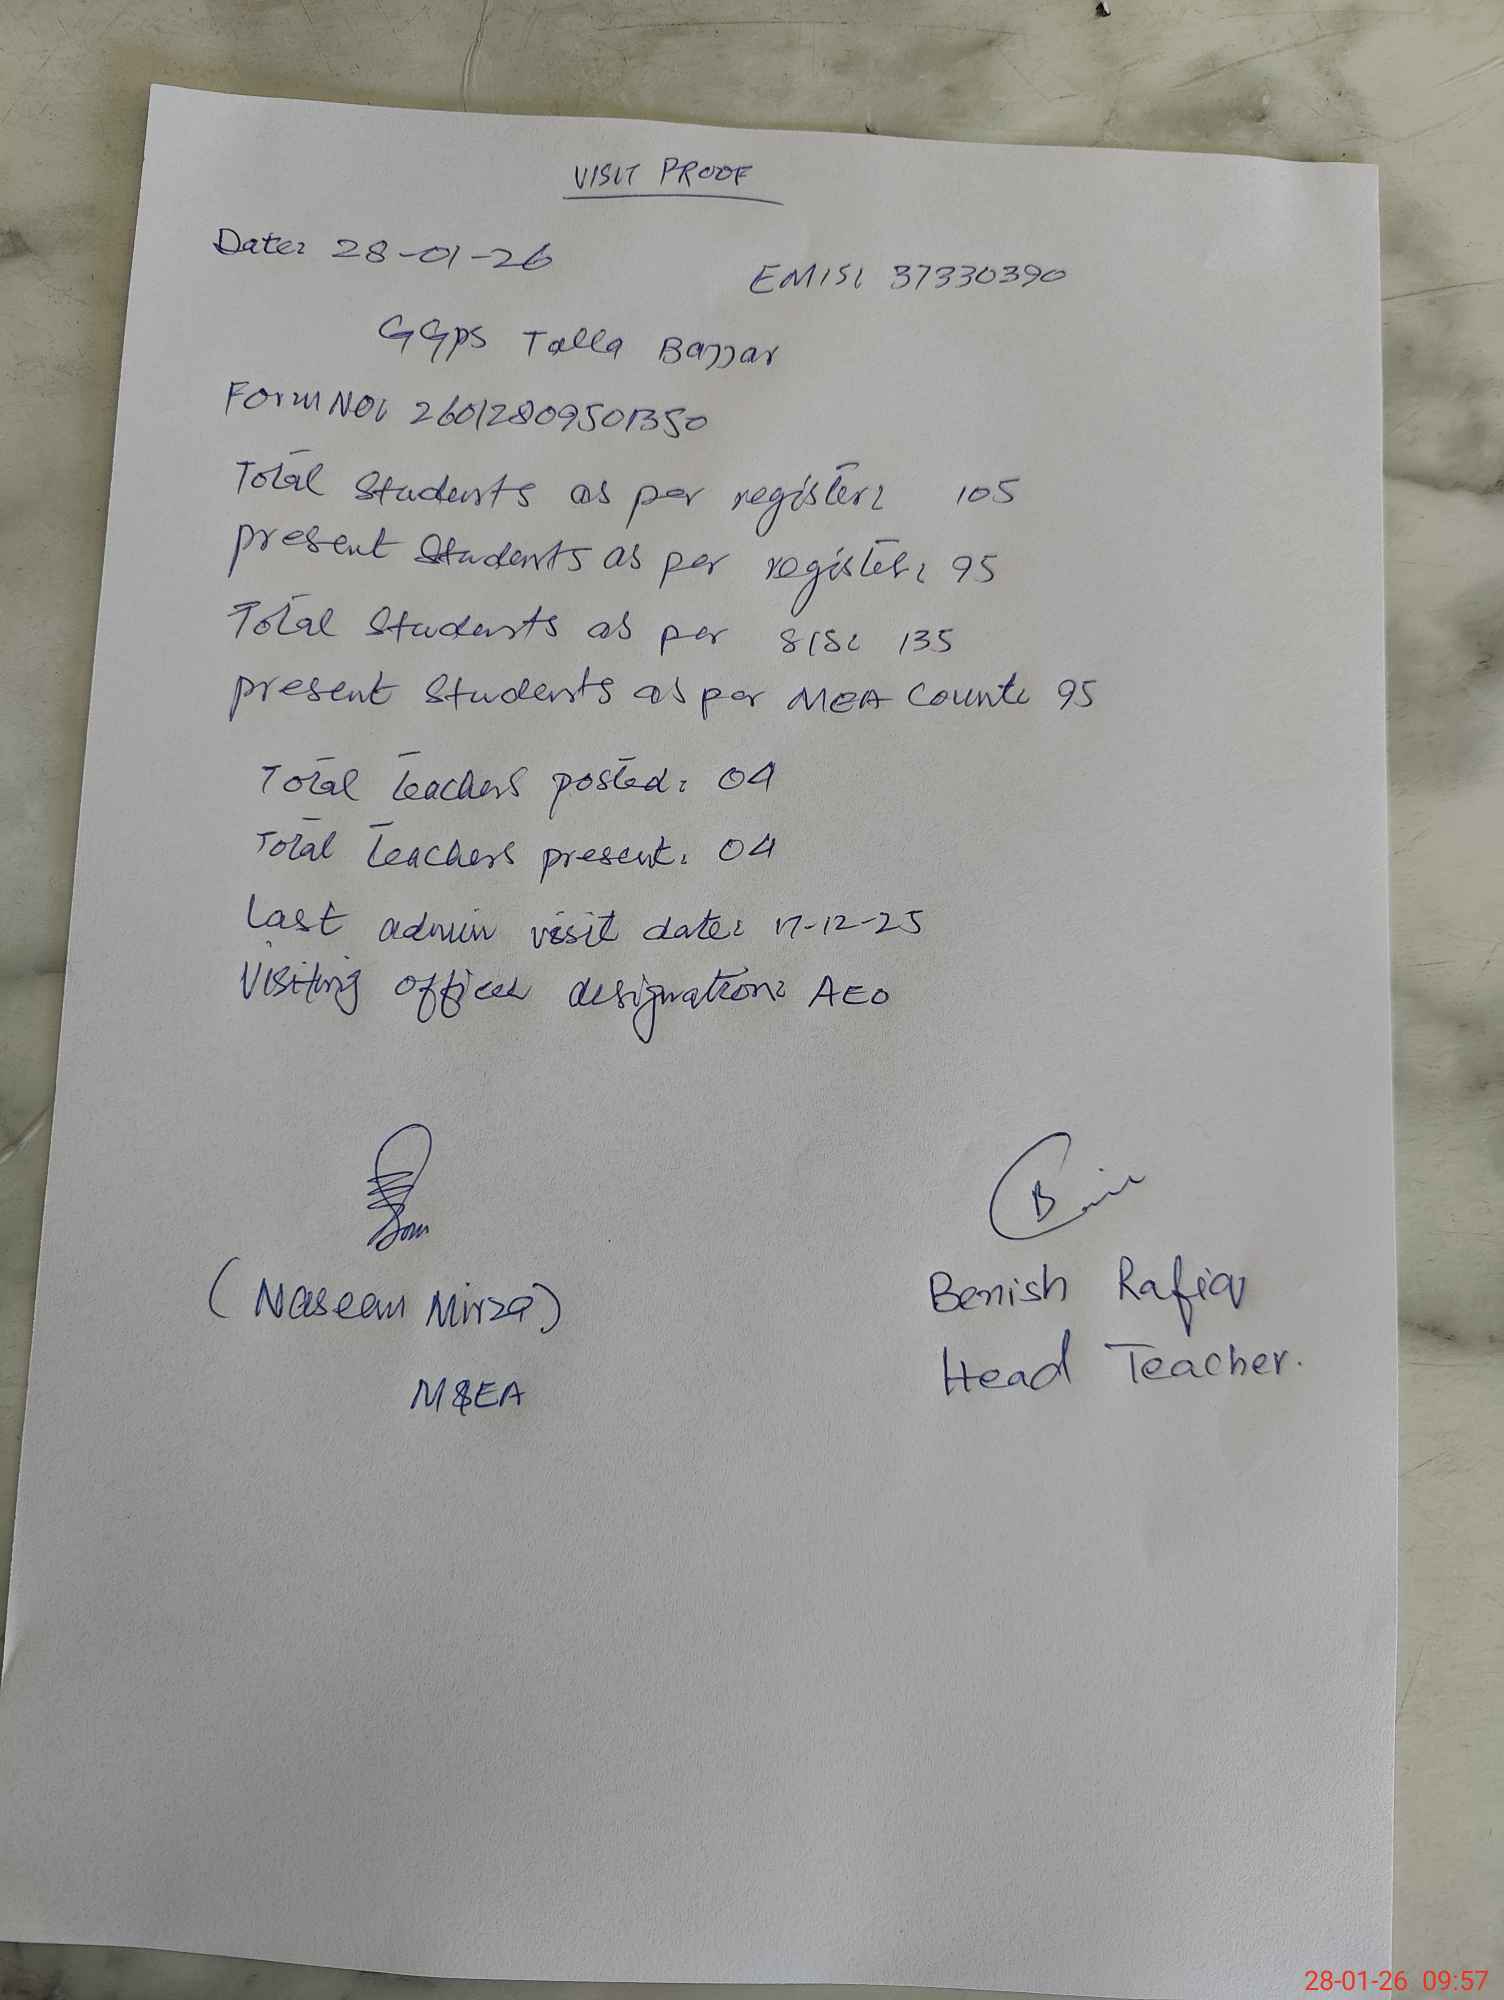 VISIT PROOF
Date: 28-01-26
EMIS: 37330390
GGPS Talla Bajjar
Form No: 26012809501350
Total Students as per register: 105
present Students as per register: 95
Total Students as per SIS: 135
present Students as per MEA Count: 95
Total teachers posted: 04
Total teachers present: 04
Last admin visit date: 17-12-25
Visiting officer designation: AEO
(Naseem Mirza)
MEA
Benish Rafiq
Head Teacher.
28-01-26 09:57